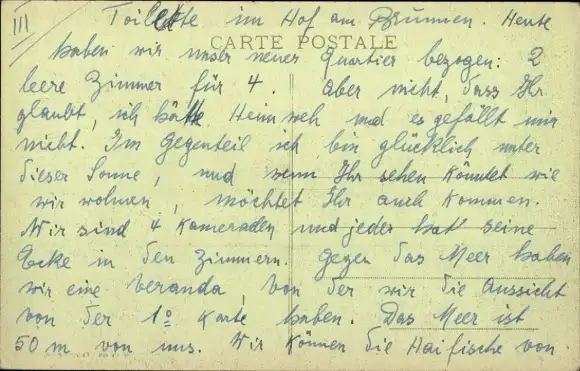 III
Toilette im Hof am Brunnen. Heute
CARTE POSTALE
haben wir unser neues Quartier bezogen: 2
leere Zimmer für 4. Aber nicht, dass Ihr
glaubt, ich hätte Heimweh und es gefällt mir
nicht. Im Gegenteil ich bin glücklich unter
dieser Sonne, und wenn Ihr sehen könntet wie
wir wohnen, möchtet Ihr auch kommen.
Wir sind 4 Kameraden und jeder hat seine
Ecke in den Zimmern. Gegen das Meer haben
wir eine Veranda, von der wir die Aussicht
von der 1º Karte haben. Das Meer ist
50 m von uns. Wir können die Haifische von